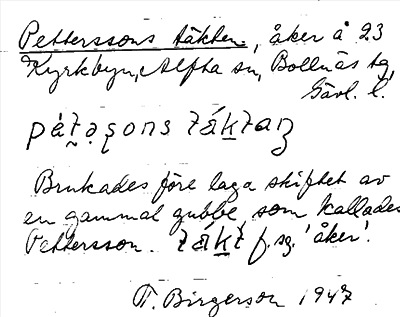 Petterssons täkten, åker å 23
Kyrkbyn, Alfta sn, Bollnäs tg,
Gävl. l.
pátəsons táktaŋ
Brukades före laga skiftet av
en gammal gubbe, som kallades
Pettersson. tákt f. sg. 'åker'.
T. Birgerson 1947